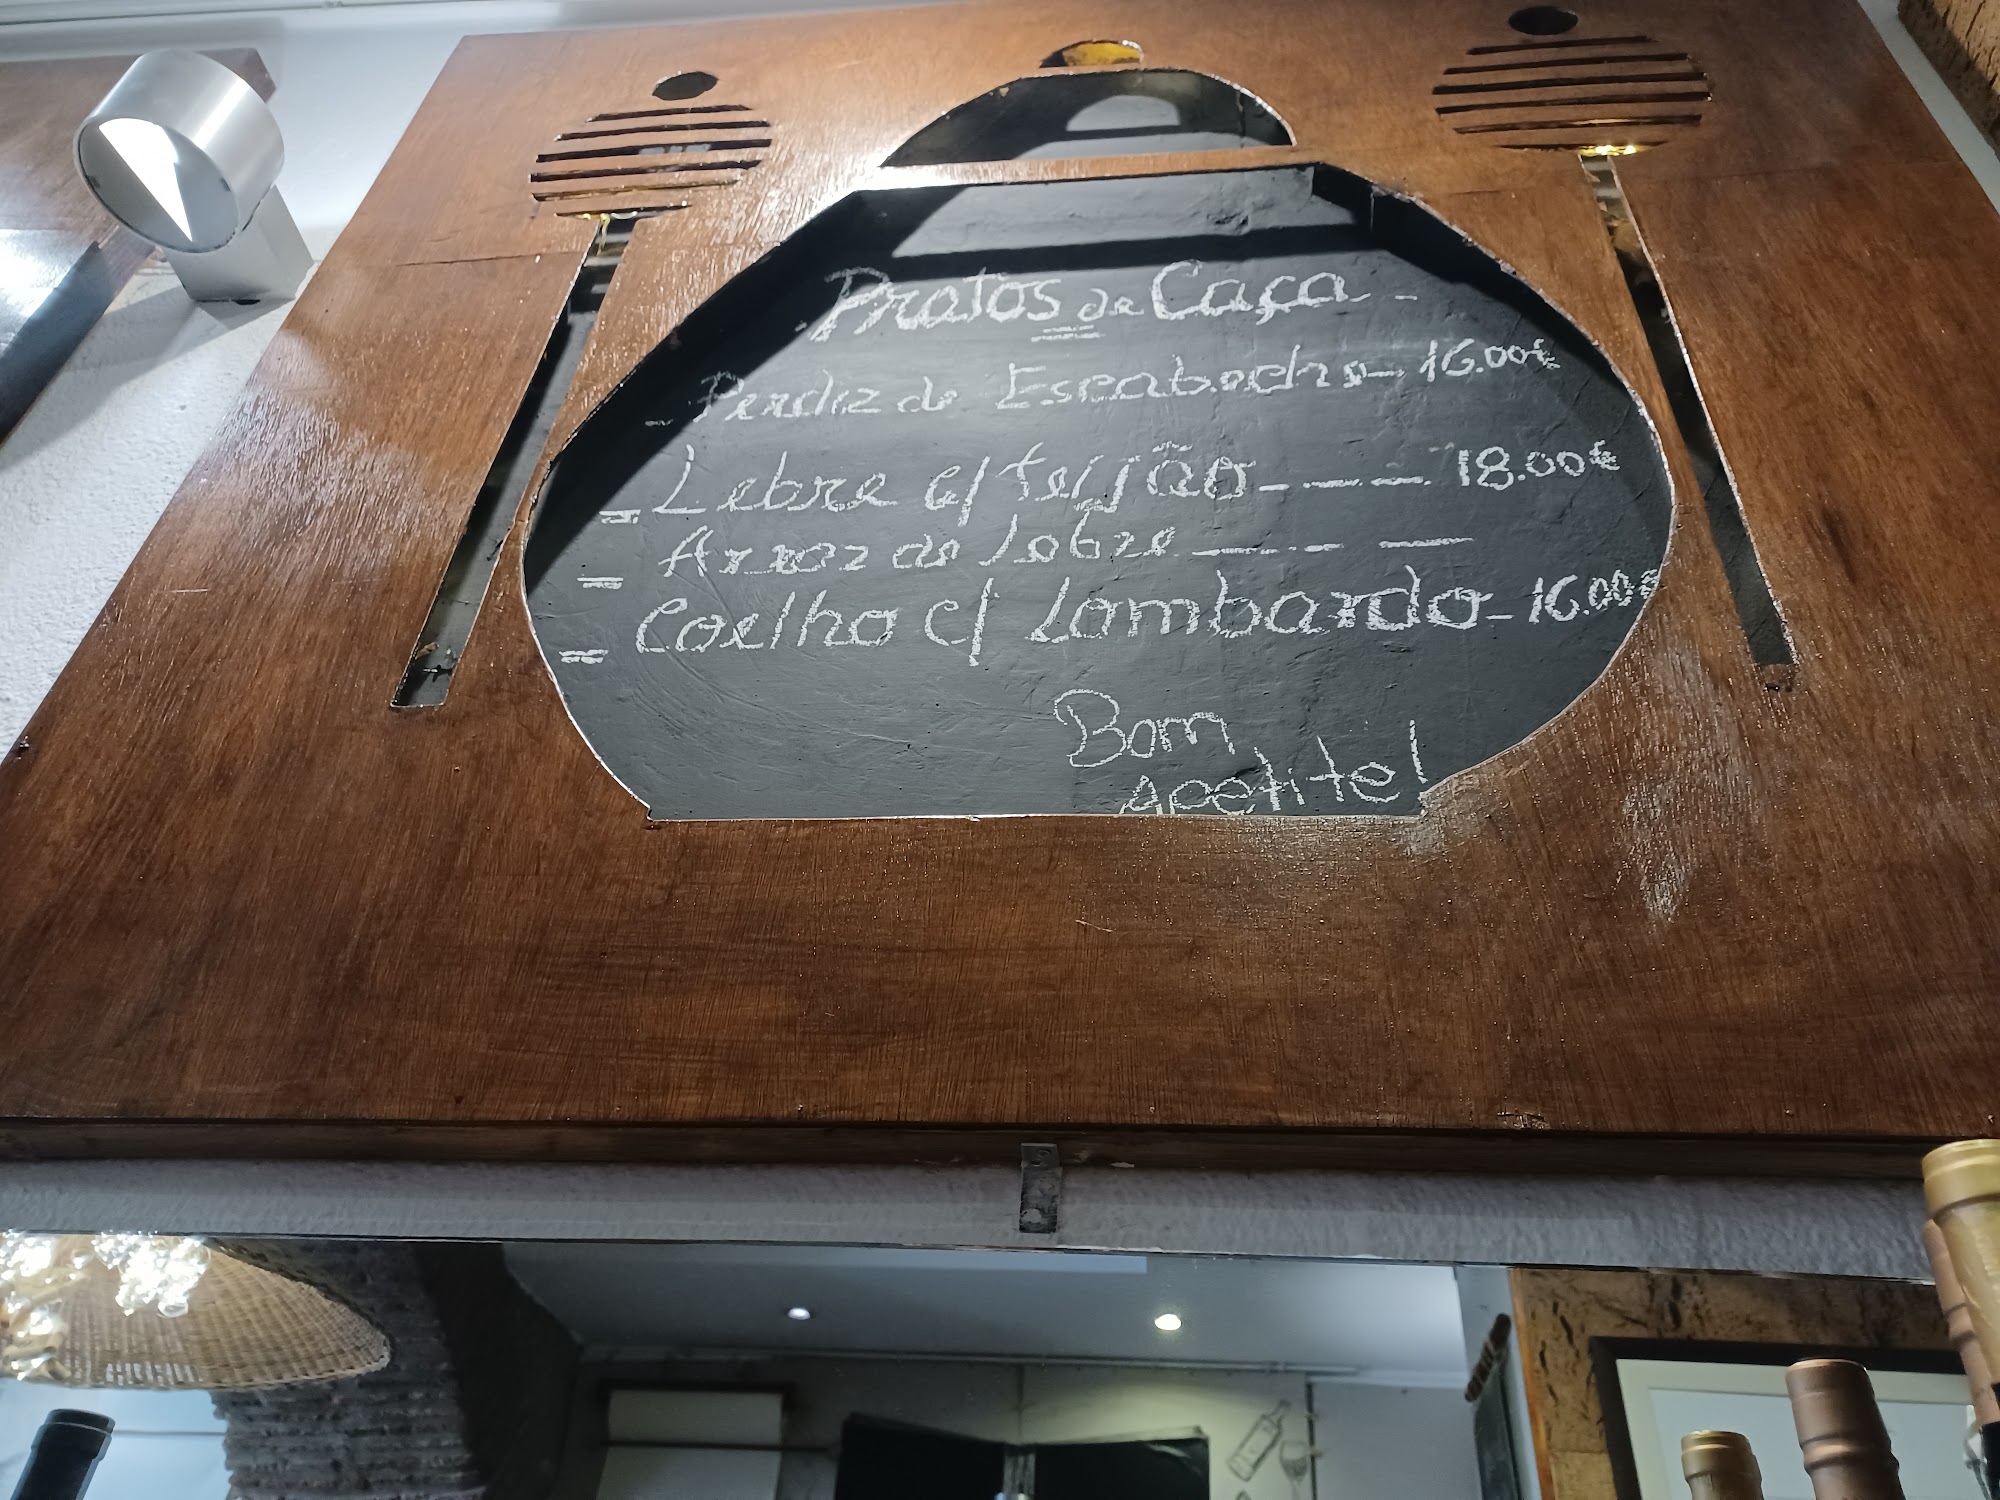 Pratos de Caça -
- Perdiz de Escabecho - 16.00€
= Lebre c/ feijão - - - - 18.00€
= Arroz de Lebre - - - -
= Coelho c/ Lombardo - 16.00€
Bom
Apetite!